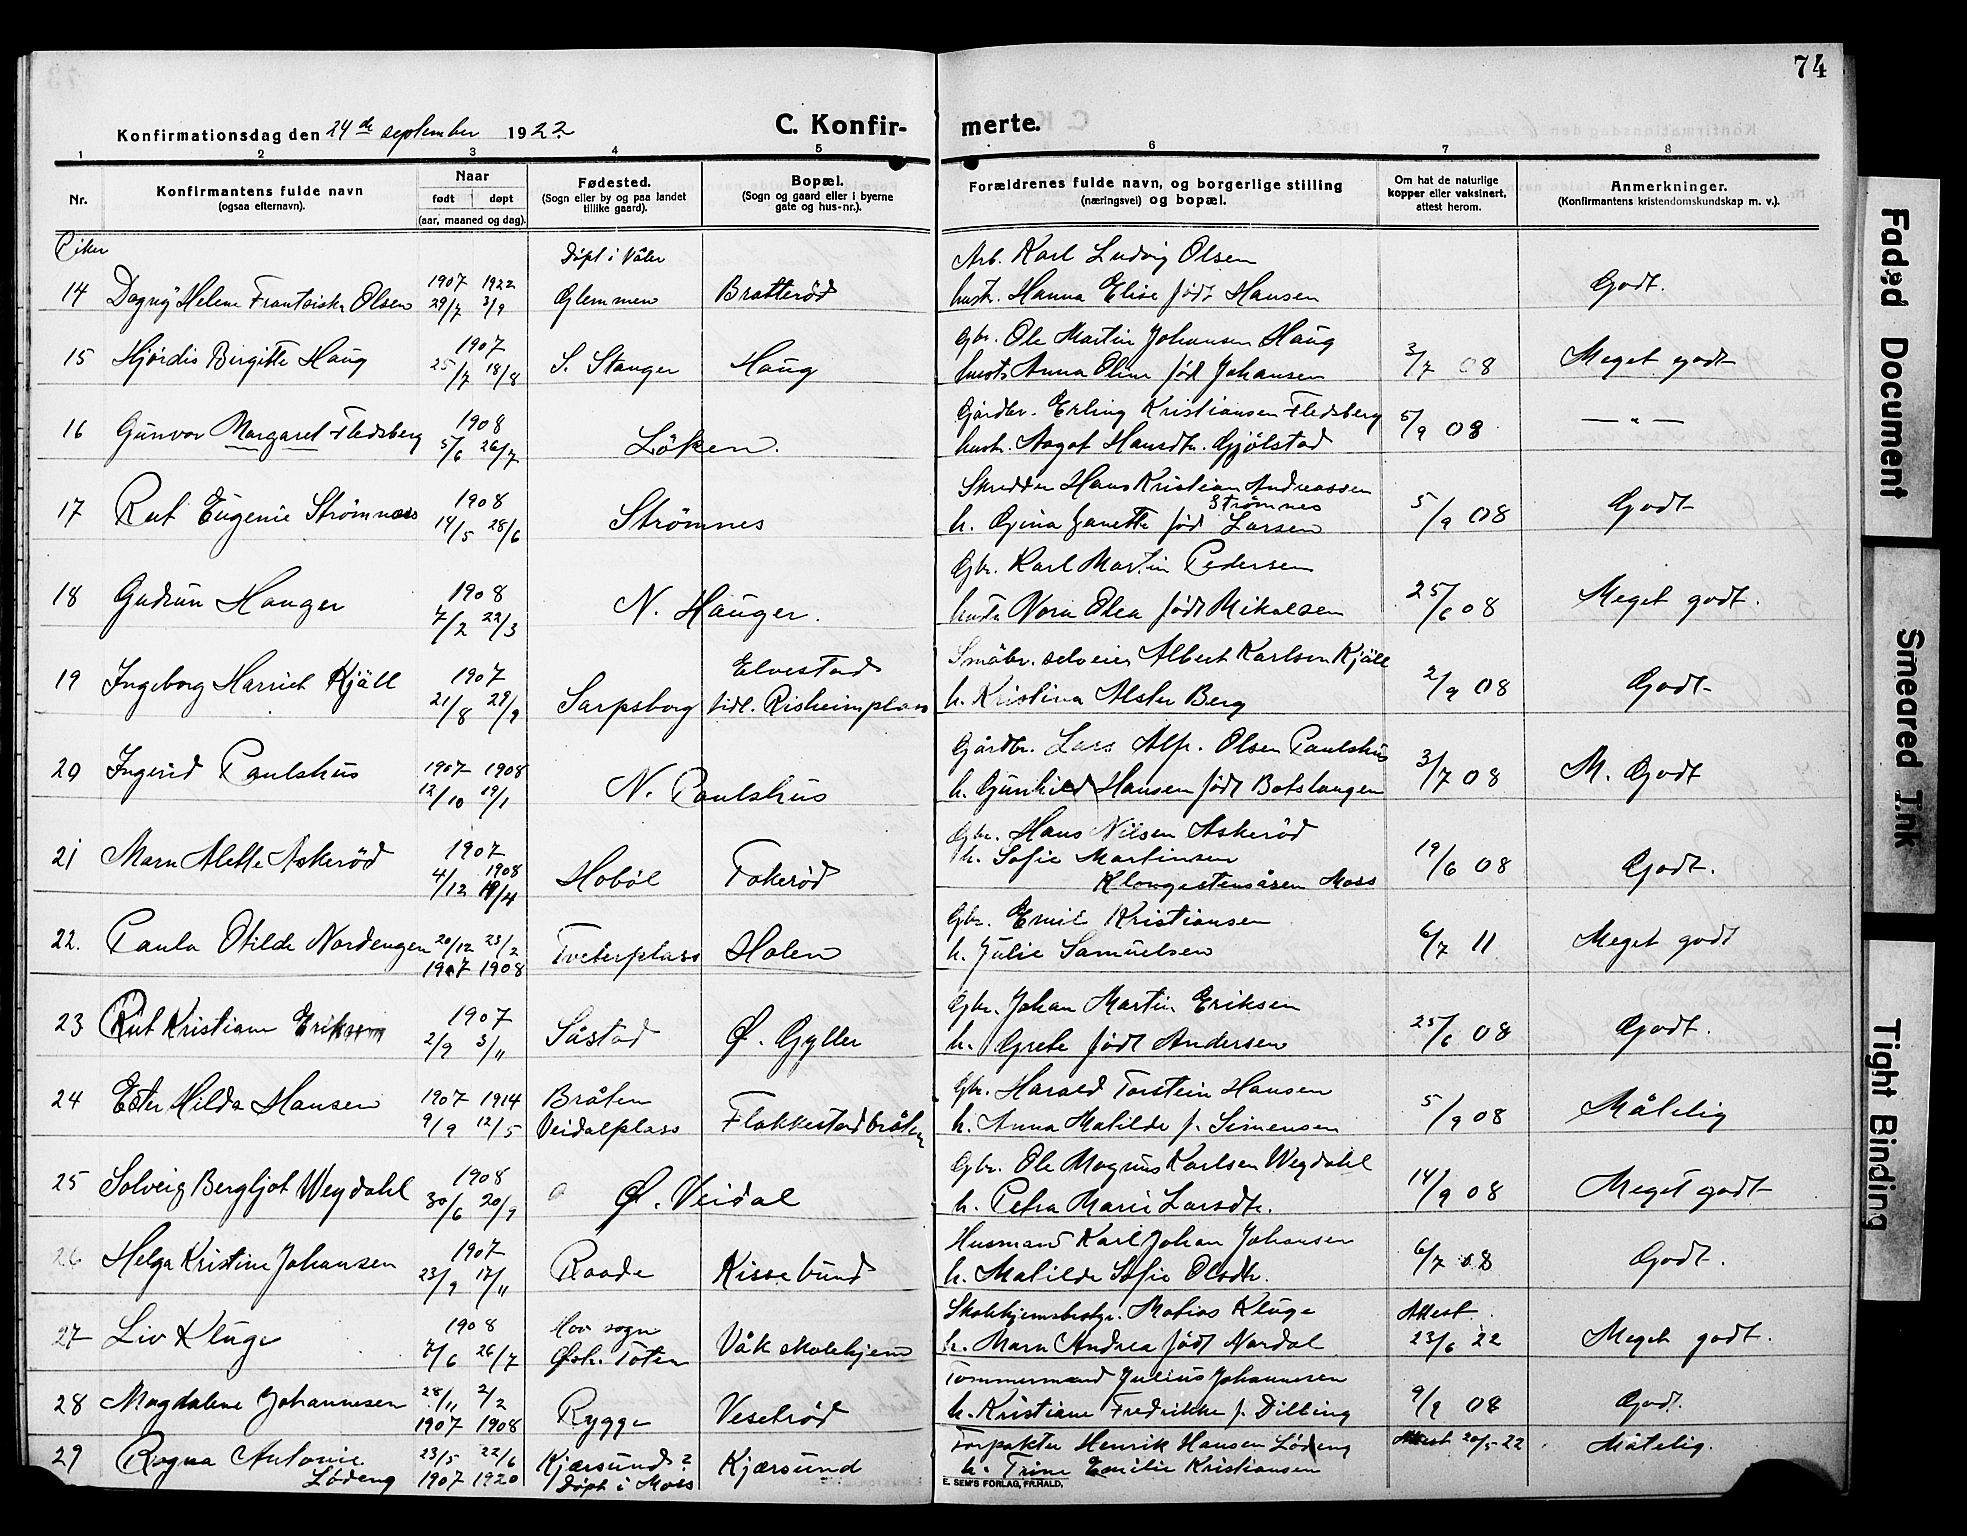 74
Konfirmationsdag den 24de september 1922.
C. Konfir-
merte.
1 2 3 4 5 6 7 8
Nr.
Konfirmantens fulde navn
(ogsaa efternavn).
Naar
født døpt
(aar, maaned og dag).
Fødested.
(Sogn eller by og paa landet
tillike gaard).
Bopæl.
(Sogn og gaard eller i byerne
gate og hus-nr.).
Forældrenes fulde navn, og borgerlige stilling
(næringsvei) og bopæl.
Om hat de naturlige
kopper eller vaksinert,
attest herom.
Anmerkninger.
(Konfirmantens kristendomskundskap m. v.).
Piker
Døpt i Våler Arb. Karl Ludvig Olsen
1907 1922
14 Dagny Helene Frantziska Olsen 29/7 3/9 Glemmen Bratterød hustr. Hanna Elise født Hansen Godt.
1907 Gbr. Ole Martin Johansen Haug
15 Hjørdis Birgitte Haug 25/7 18/8 S. Stanger Haug hustr. Anna Oline fød Johansen 3/7 08 Meget godt
1908 Gårdbr. Erling Kristiansen Fledsberg
16 Gunvor Margaret Fledsberg 5/6 26/7 Løken. hustr. Aagot Hansdtr. Gjølstad 5/9 08 — " —
1908 Skredder Hans Kristian Andreassen
Strømnes
17 Rut Eugenie Strømnes 14/5 28/6 Strømnes h. Gina Janette født Larsen 5/9 08 Godt
Gbr. Karl Martin Pedersen
1908
18 Gudrun Hauger 7/2 22/3 N. Hauger. hustr. Nora Olea født Mikalsen 25/6 08 Meget godt.
1907 Elvestad Småbr. selveier Albert Karlsen Kjäll
19 Ingeborg Harriet Kjäll 21/8 29/9 Sarpsborg tidl. Risheimplass h. Kristina Alster Berg 2/9 08 Godt
1907 1908 Gårdbr. Lars Alfr. Olsen Paulshus
20 Ingerid Paulshus 12/10 19/1 N. Paulshus h. Gunhild Hansen født Botslangen 3/7 08 M. Godt
1907 Gbr. Hans Nilsen Askerød
1908 h. Sofie Martinsen
21 Marn Alette Askerød 4/12 19/4 Hobøl Fokerød Klongestensåsen Moss 19/6 08 Godt.
Gbr. Emil Kristiansen
22. Paula Otilde Nordengen 20/12 23/2 Tveterplass Holen h. Julie Samuelsen 6/7 11 Meget godt
1907 1908
1907 Gbr. Johan Martin Eriksen
23 Rut Kristiane Eriksen 2/9 3/11 Såstad Ø. Gyller h. Grete født Andersen 25/6 08 Godt.
1907 1914 Bråten Gbr. Harald Torstein Hansen
24 Ester Hilda Hansen 9/9 12/5 Veidalplass Flakkestadbråten h. Anna Matilde f. Simensen 5/9 08 Måtelig
1908 Gbr. Ole Magnus Karlsen Wegdahl
25 Solveig Bergljot Wegdahl 30/6 20/9 Ø. Veidal h. Petra Marie Larsdtr. 14/9 08 Meget godt
1907 Husmand Karl Johan Johansen
26 Helga Kristine Johansen 23/9 17/11 Raade Kissebund h. Matilde Sofie Olsdtr. 6/7 08 Godt.
1908 Hov sogn Skolehjemsbestyr. Matias Kluge Attest
27 Liv Kluge 7/6 26/7 Østr. Toten Våk skolehjem h. Marn Andrea født Nordal 23/6 22 Meget godt.
Tømmermand Julius Johannesen
28 Magdalene Johannesen 28/11 2/2 Rygge Vesetrød h. Kristiane Fredrikke f. Dilling 9/9 08 Godt.
1907 1908
29 Ragna Antonie 23/5 22/6 Kjærsund? Kjærsund Forpakter Henrik Hansen Lødeng Attest 20/5 22 Måtelig.
Lødeng 1907 1920 Døpt i Moss h. Trine Emilie Kristiansen
E. SEM'S FORLAG, FR.HALD.
Faded Document
Smeared Ink
Tight Binding